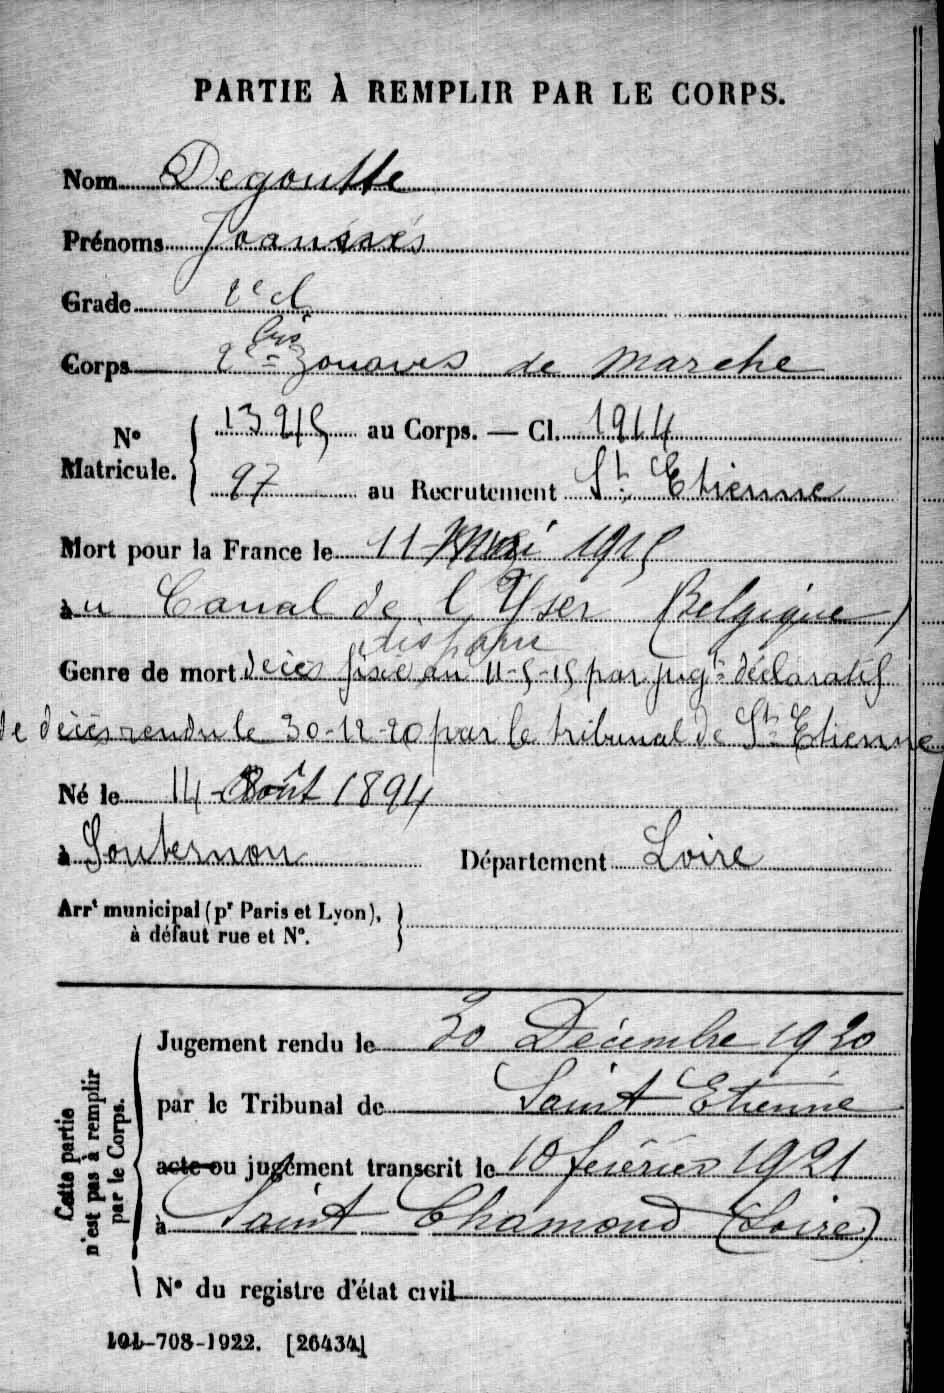 PARTIE À REMPLIR PAR LE CORPS.
Nom Degoutte
Prénoms Joannès
Grade 2e cl
Corps 2e bis zouaves de marche
No Matricule. 13245 au Corps. — Cl. 1914
97 au Recrutement St Etienne
Mort pour la France le 11 mai 1915
au Canal de l'Yser (Belgique)
disparu
Genre de mort décès fixé au 11-5-15 par jugt déclaratif
de décès rendu le 30-12-20 par le tribunal de St Etienne
Né le 14 Août 1894
à Souternon Département Loire
Arrt municipal (pr Paris et Lyon), à défaut rue et No.
Cette partie n'est pas à remplir par le Corps.
Jugement rendu le 30 Décembre 1920
par le Tribunal de Saint Etienne
acte ou jugement transcrit le 10 février 1921
à Saint Chamond (Loire)
No du registre d'état civil
101-708-1922. [26434]